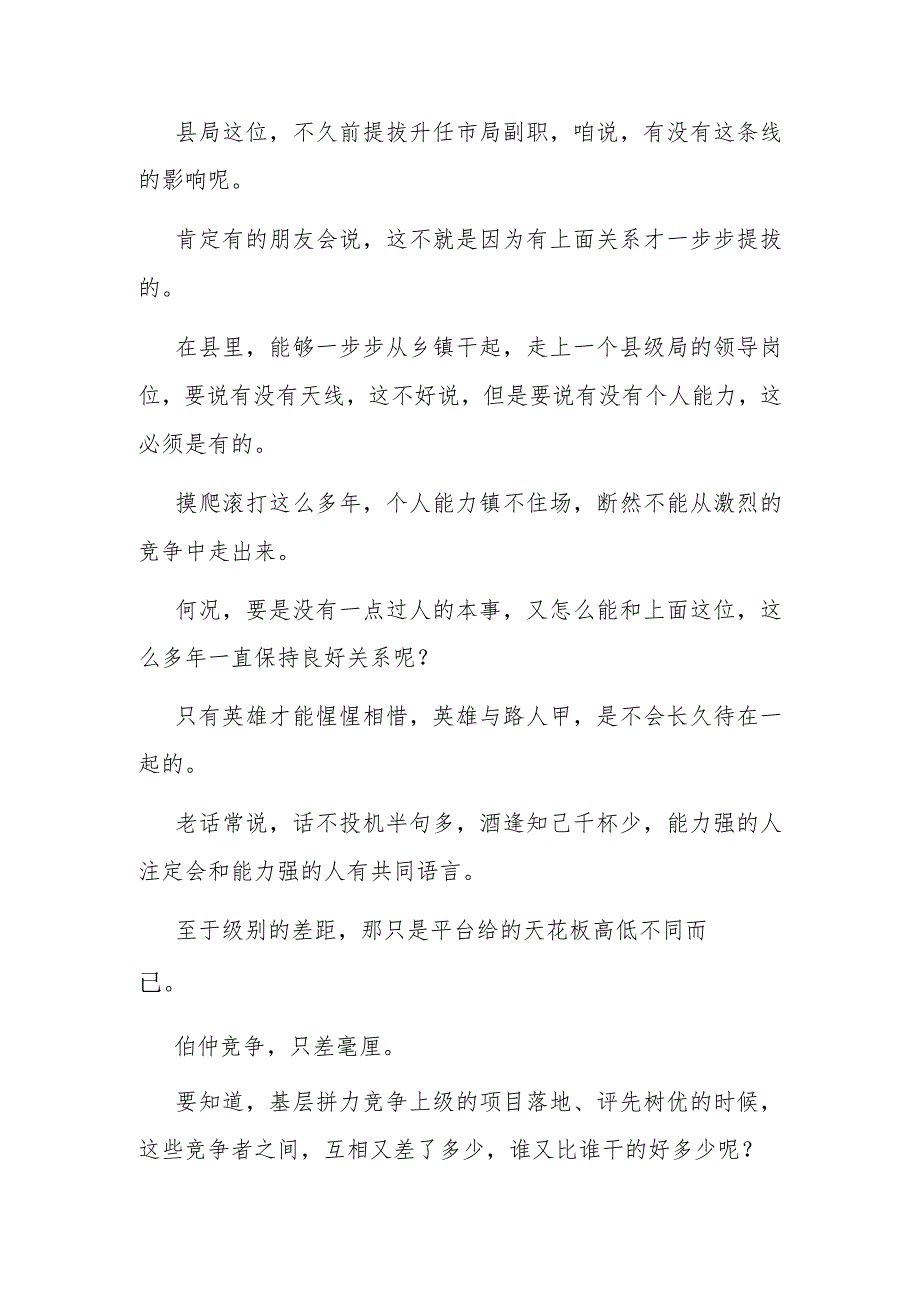 县局这位，不久前提拔升任市局副职，咱说，有没有这条线
的影响呢。
肯定有的朋友会说，这不就是因为有上面关系才一步步提拔
的。
在县里，能够一步步从乡镇干起，走上一个县级局的领导岗
位，要说有没有天线，这不好说，但是要说有没有个人能力，这
必须是有的。
摸爬滚打这么多年，个人能力镇不住场，断然不能从激烈的
竞争中走出来。
何况，要是没有一点过人的本事，又怎么能和上面这位，这
么多年一直保持良好关系呢？
只有英雄才能惺惺相惜，英雄与路人甲，是不会长久待在一
起的。
老话常说，话不投机半句多，酒逢知己千杯少，能力强的人
注定会和能力强的人有共同语言。
至于级别的差距，那只是平台给的天花板高低不同而
已。
伯仲竞争，只差毫厘。
要知道，基层拼力竞争上级的项目落地、评先树优的时候，
这些竞争者之间，互相又差了多少，谁又比谁干的好多少呢？